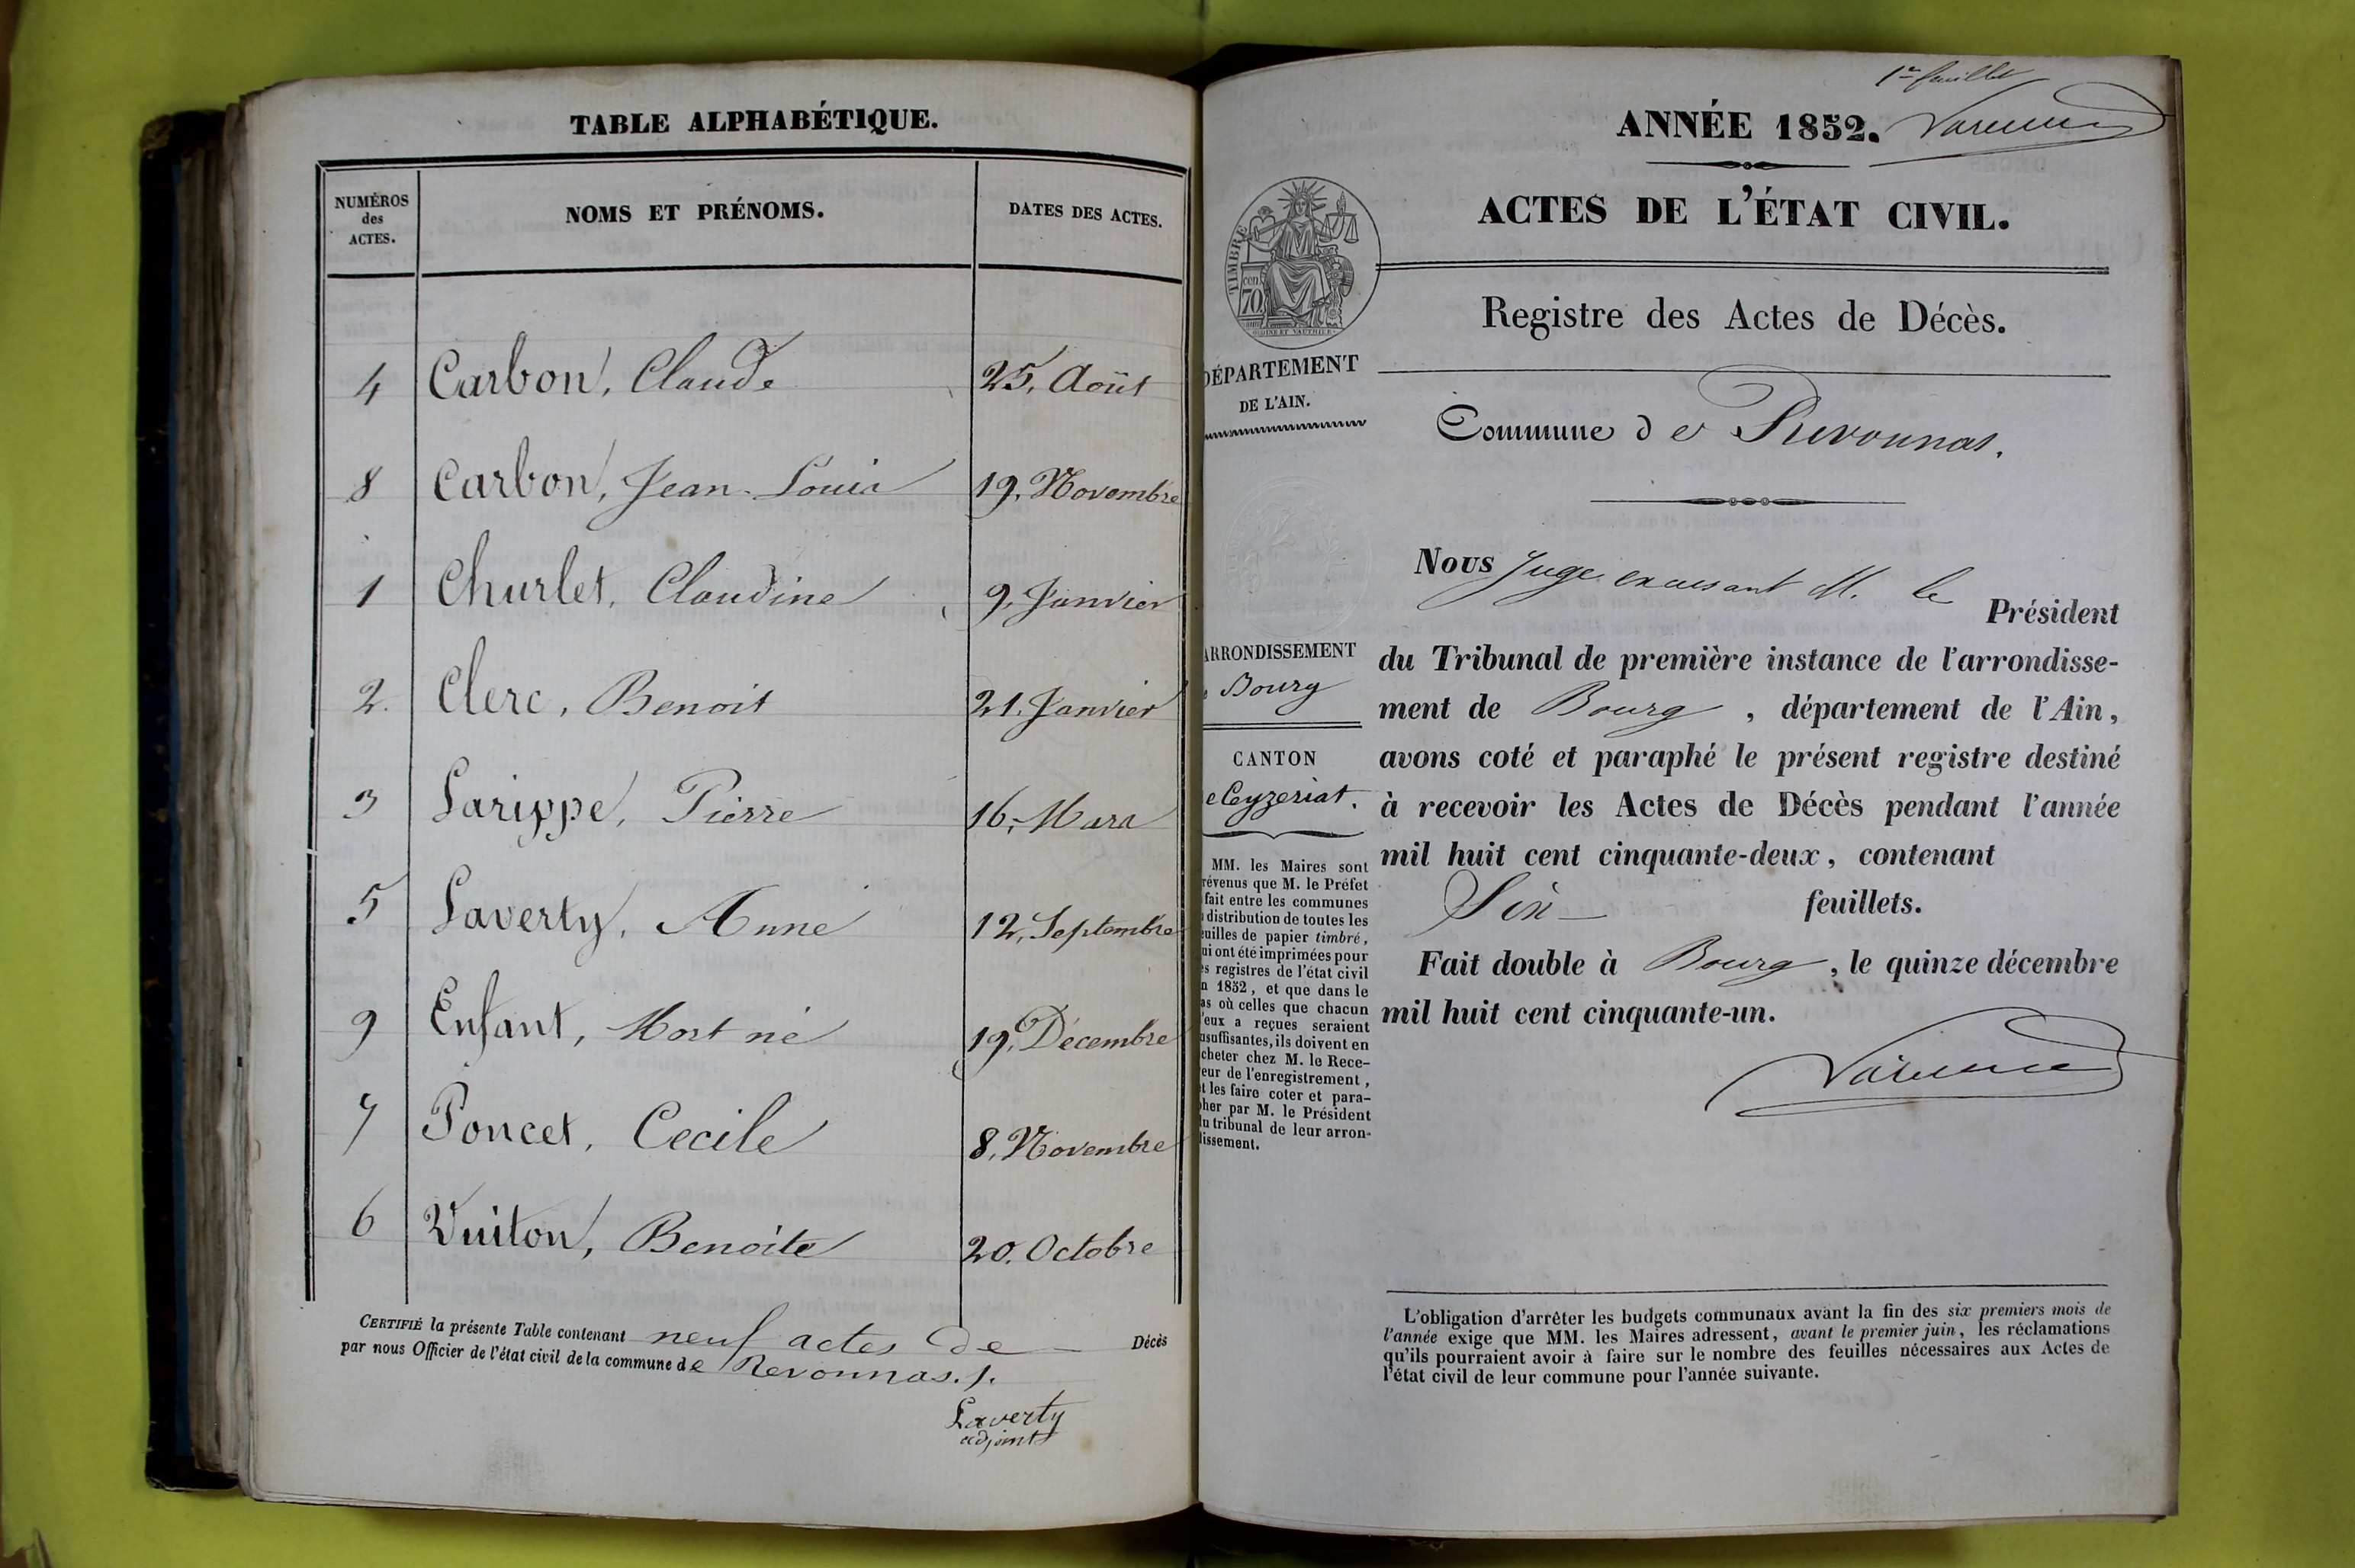 TABLE ALPHABÉTIQUE.
NUMÉROS des ACTES. NOMS ET PRÉNOMS. DATES DES ACTES.
4 Carbon, Claude 25, Août
8 Carbon, Jean-Louis 19, Novembre
1 Churlet, Claudine 9, Janvier
2. Clerc, Benoit 21. Janvier
3 Larippe, Pierre 16, Mars
5 Laverty, Anne 12, Septembre
9 Enfant, Mort né 19, Décembre
7 Poncet, Cecile 8, Novembre
6 Vuiton, Benoite 20. Octobre
CERTIFIÉ la présente Table contenant neuf actes de Décès
par nous Officier de l'état civil de la commune de Revonnas.
Laverty
adjoint
1er feuillet
ANNÉE 1852.
ACTES DE L'ÉTAT CIVIL.
TIMBRE
70 cen
Registre des Actes de Décès.
DÉPARTEMENT
DE L'AIN.
Commune de Revonnas.
ARRONDISSEMENT
Bourg
CANTON
e Ceyzeriat.
MM. les Maires sont
révenus que M. le Préfet
fait entre les communes
distribution de toutes les
euilles de papier timbré,
ui ont été imprimées pour
es registres de l'état civil
n 1852, et que dans le
as où celles que chacun
'eux a reçues seraient
nsuffisantes, ils doivent en
cheter chez M. le Rece-
eur de l'enregistrement,
t les faire coter et para-
her par M. le Président
u tribunal de leur arron-
issement.
Nous Juge excusant M. le Président
du Tribunal de première instance de l'arrondisse-
ment de Bourg, département de l'Ain,
avons coté et paraphé le présent registre destiné
à recevoir les Actes de Décès pendant l'année
mil huit cent cinquante-deux, contenant
Six feuillets.
Fait double à Bourg, le quinze décembre
mil huit cent cinquante-un.
L'obligation d'arrêter les budgets communaux avant la fin des six premiers mois de
l'année exige que MM. les Maires adressent, avant le premier juin, les réclamations
qu'ils pourraient avoir à faire sur le nombre des feuilles nécessaires aux Actes de
l'état civil de leur commune pour l'année suivante.